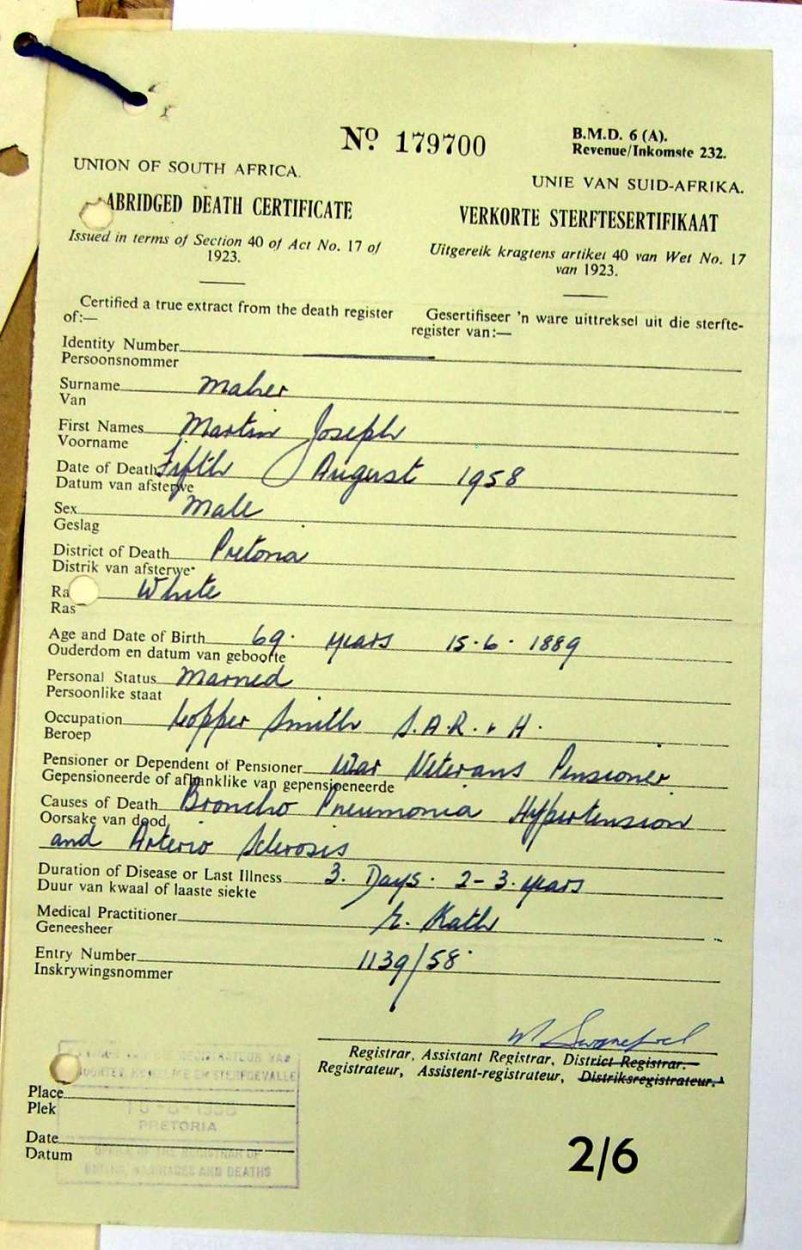 No 179700
B.M.D. 6 (A).
Revenue/Inkomste 232.
UNION OF SOUTH AFRICA.
UNIE VAN SUID-AFRIKA.
ABRIDGED DEATH CERTIFICATE
VERKORTE STERFTESERTIFIKAAT
Issued in terms of Section 40 of Act No. 17 of
1923.
Uitgereik kragtens artikel 40 van Wet No. 17
van 1923.
Certified a true extract from the death register
of:—
Gesertifiseer 'n ware uittreksel uit die sterfte-
register van:—
Identity Number
Persoonsnommer
Surname Maher
Van
First Names Martin Joseph
Voorname
Date of Death Fifth August 1958
Datum van afsterwe
Sex Male
Geslag
District of Death Pretoria
Distrik van afsterwe
Ra White
Ras
Age and Date of Birth 69. years 15.6.1889
Ouderdom en datum van geboorte
Personal Status Married
Persoonlike staat
Occupation Copper Smith S.A.R. & H.
Beroep
Pensioner or Dependent of Pensioner War Veterans Pensioner
Gepensioneerde of afhanklike van gepensioeneerde
Causes of Death Broncho Pneumonia Hypertension
Oorsake van dood
and Arterio Sclerosis
Duration of Disease or Last Illness 3. Days. 2-3. years
Duur van kwaal of laaste siekte
Medical Practitioner Kath
Geneesheer
Entry Number 1139/58
Inskrywingsnommer
Swanepoel
Registrar, Assistant Registrar, District Registrar.
Registrateur, Assistent-registrateur, Distriksregistrateur.
Place
Plek
PRETORIA
Date
Datum
OFFICE OF THE REGISTRAR OF
BIRTHS, MARRIAGES AND DEATHS
2/6